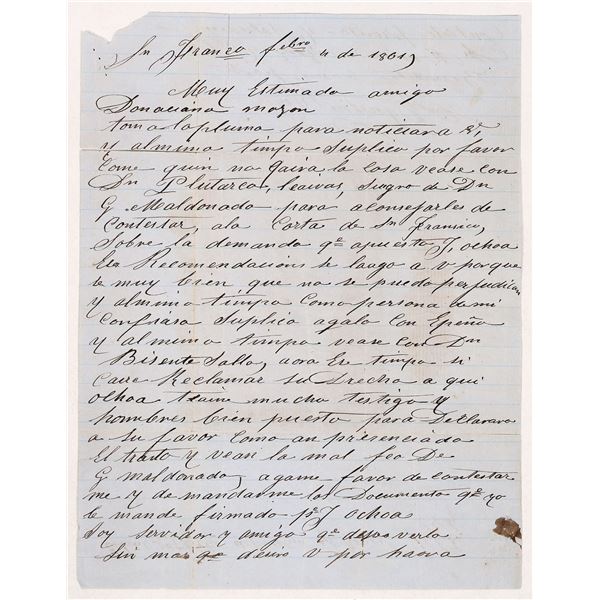 Sn Franco febro 4 de 1861
Muy Estimado amigo
Donaciana mazon
toma la pluma para noticiar a
y al mimo timpo suplico por favor
Come quin no la cosa vease con
Dn Plutarco, suegro de Dn
G Maldonado para aconsejarles de
Contestar, a la Corta de Sn Fransisco,
Sobre la demanda qe apuesto J, ochoa
Recomendacions le a v porque
be muy bien que no se puedo perjudican
y al mimo timpo como persona de mi
Confiasa Suplico agalo Con Epeño
y al mimo timpo vease con Dn
Bisente Salto, aora Ere timpo si
Caire Reclamar su Drecho a qui
ochoa traime mucho testigo y
hombres bien puerto para Declarara
a su favor Como an presenciado
El trato y vean la mal fea De
G maldonado, agame favor de contestar
me y de mandarme los Documento qe yo
le mande firmado pr J ochoa
Soy servidor y amigo qe verlo
Sin mas qe v por haora